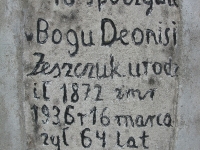 Tu spoczywa
Bogu Deonisi
Zeszczuk urodz
il 1872 zmr
1936 r 16 marca
żył 64 lat